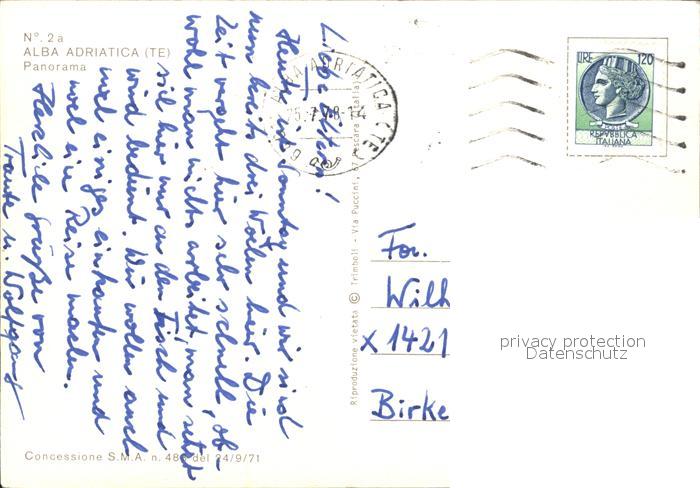 Nº. 2a
ALBA ADRIATICA (TE)
Panorama
Liebe Eltern!
Heute ist Sonntag und wir sind
nun bereits drei Wochen hier. Die
Zeit vergeht hier sehr schnell, ob-
wohl man nichts arbeitet, man setzt
sich hier nur an den Tisch und
wird bedient. Wir wollen auch
noch einiges einkaufen und
noch eine Reise machen.
Herzliche Grüße von
Traute u. Wolfgang
Concessione S.M.A. n. 486 del 24/9/71
Riproduzione vietata © Trimboli - Via Puccini, 67 Pescara (Italia)
ALBA ADRIATICA (TE)
LIRE 120
REPVBBLICA
ITALIANA
Fam.
Wilh
X 1421
Birke
privacy protection
Datenschutz